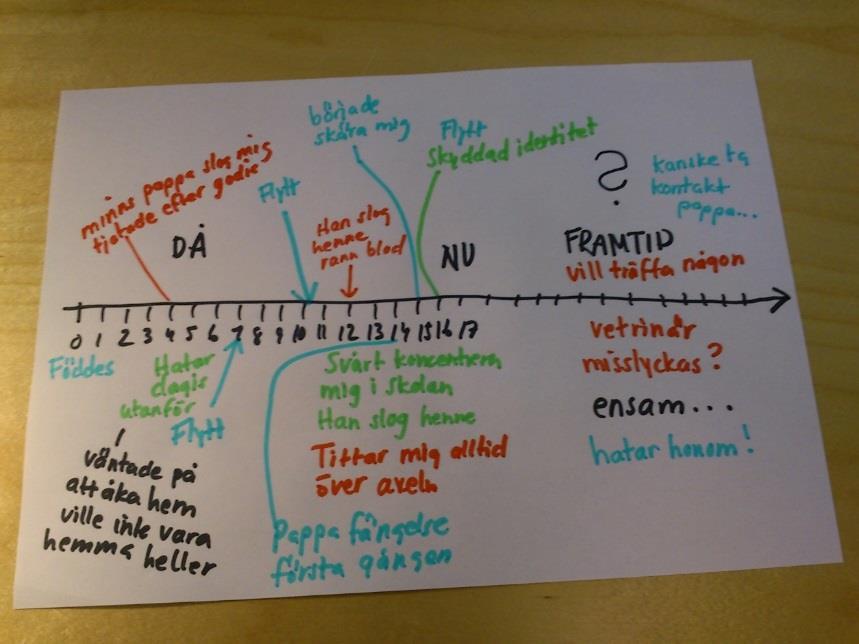 började
skära mig
Flytt
Skyddad identitet
minns pappa slog mig
tjatade efter godis
Flytt
Han slog
henne
rann blod
?
kanske ta
kontakt
pappa...
DÅ
NU
FRAMTID
vill träffa någon
0 1 2 3 4 5 6 7 8 9 10 11 12 13 14 15 16 17
Föddes
Hatar
dagis
utanför
Flytt
väntade på
att åka hem
ville inte vara
hemma heller
Svårt koncentrera
mig i skolan
Han slog henne
Tittar mig alltid
över axeln
Pappa fängelse
första gången
vetrinär
misslyckas?
ensam...
hatar honom!